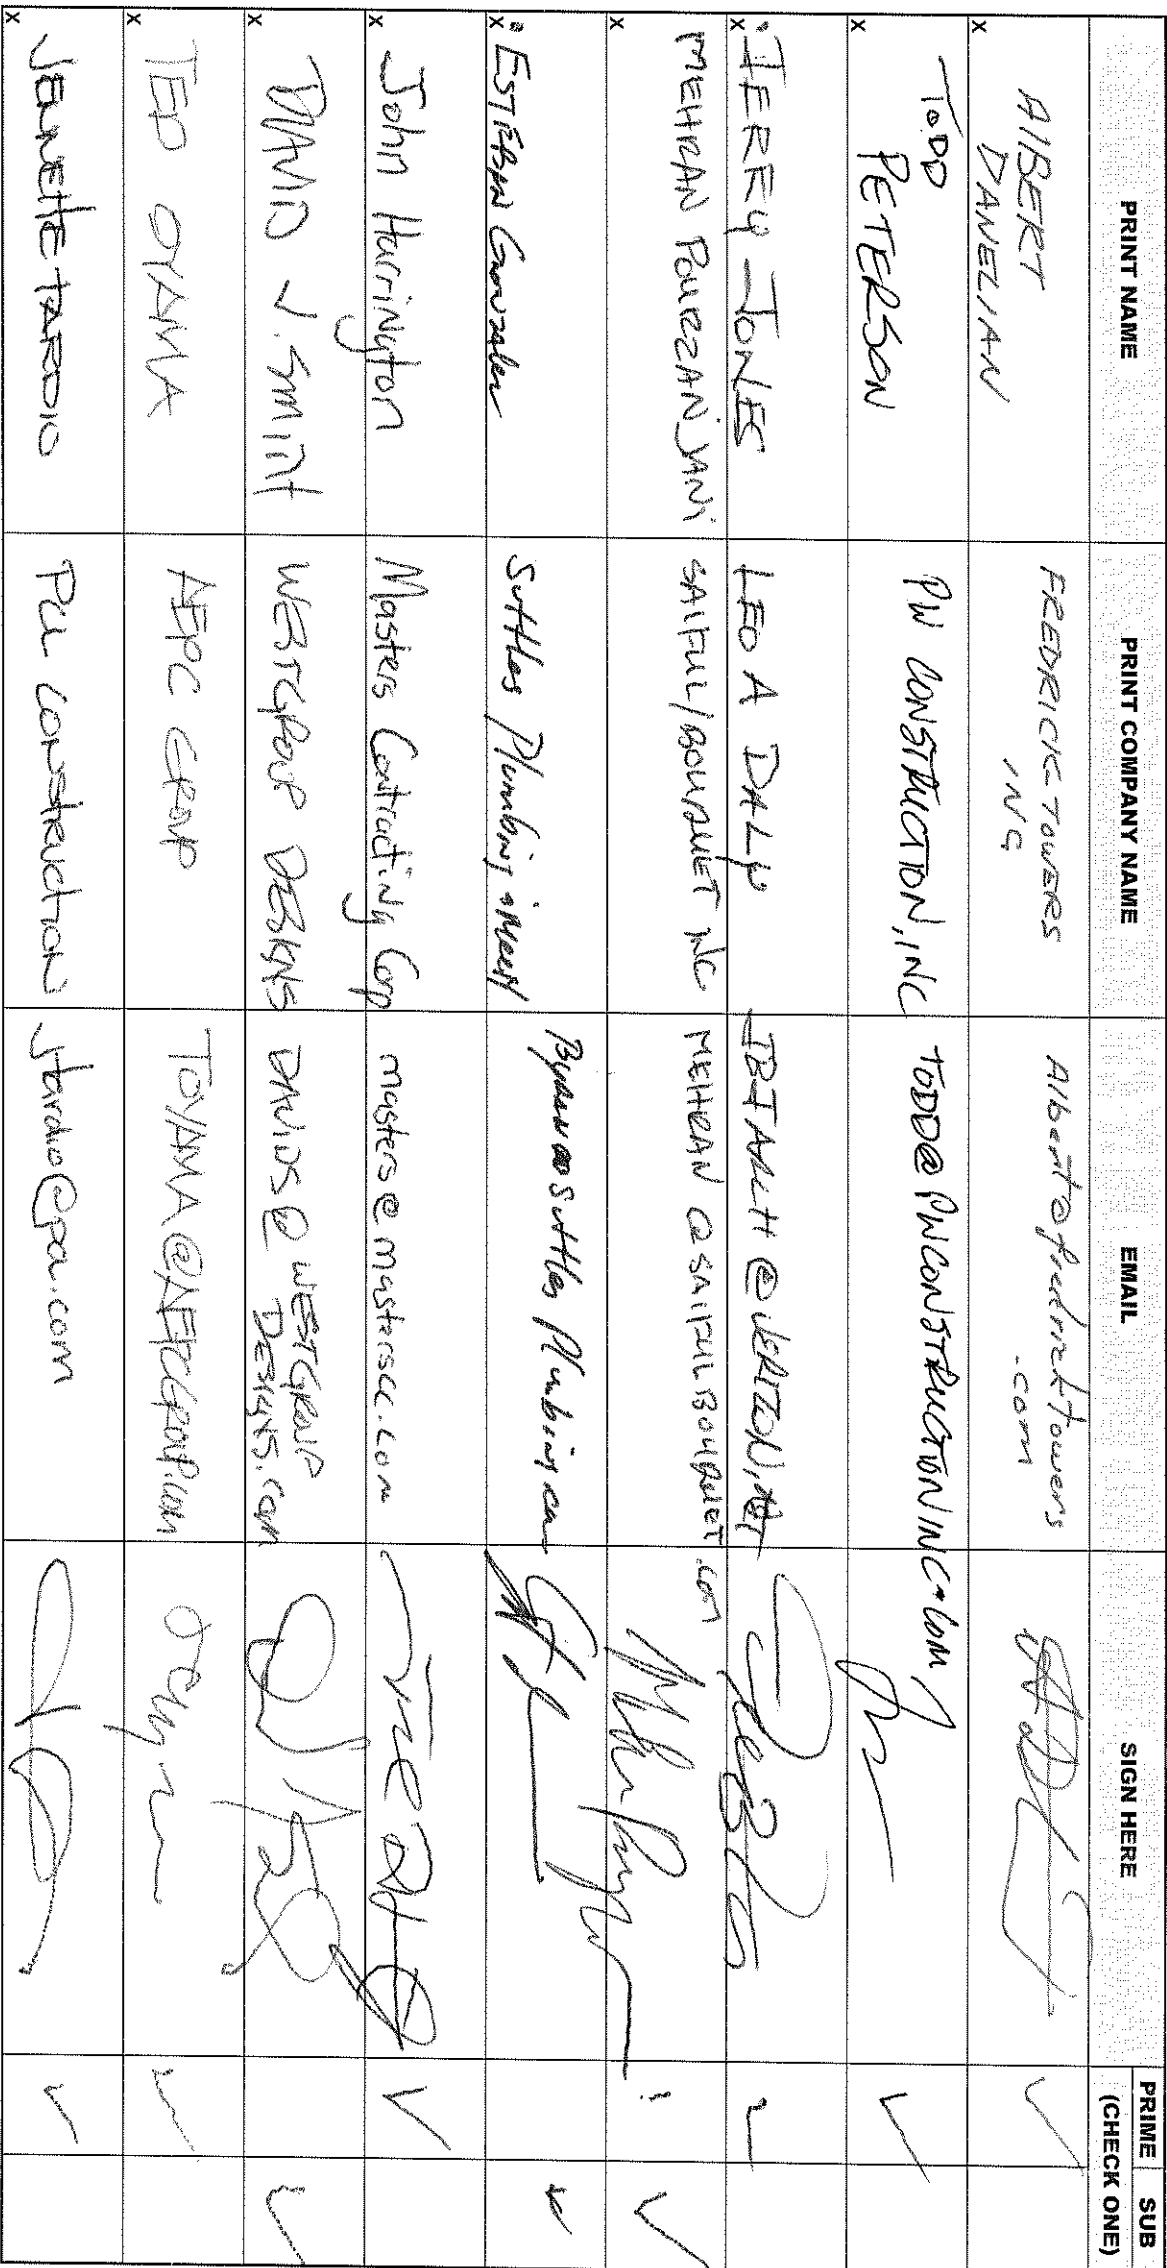 PRINT NAME PRINT COMPANY NAME EMAIL SIGN HERE PRIME SUB
(CHECK ONE)
x ALBERT DANELIAN FREDRICK TOWERS INC Albert@fredricktowers.com
x TODD PETERSON PW CONSTRUCTION, INC TODD@PWCONSTRUCTIONINC.COM
x JERRY JONES LEO A DALY JBJARCH@VERIZON.NET
x MEHRAN POURZANJANI SAIFUL/BOUQUET INC MEHRAN@SAIFULBOUQUET.COM
x ESTEBAN Gonzalez Suttles Plumbing
x John Harrington Masters Contracting Corp masters@masterscc.com
x DAVID J. SMITH WESTGROUP DESIGNS DAVIDS@WESTGROUPDESIGNS.com
x TED OYAMA AEPC GROUP TOYAMA@AEPCGROUP.COM
x JEANETTE TARDIO PCL CONSTRUCTION jtardio@pcl.com